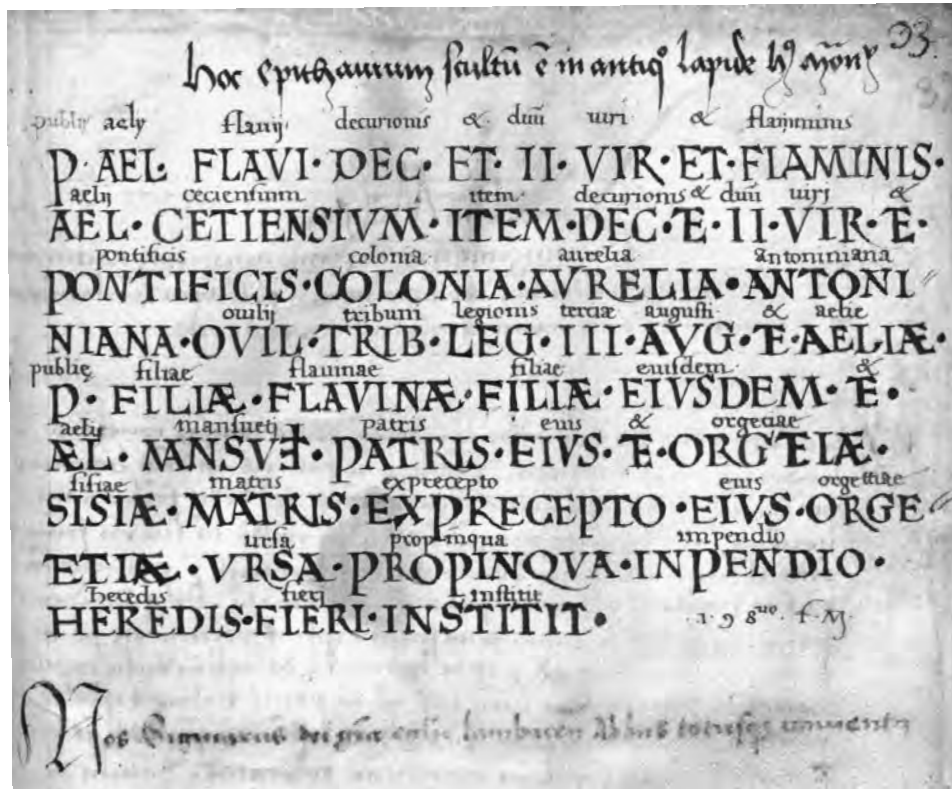 93
Hoc epithavium scultū ē in antiqꝰ lapide hꝰ
publij aelij flauij decurionis & duū uiri & flaminis
P · AEL FLAVI · DEC · ET · II · VIR · ET · FLAMINIS ·
aelij ceciensium item decurionis & duū uirj &
AEL · CETIENSIVM · ITEM · DEC · E · II · VIR · E ·
pontificis colonia aurelia antoniniana
PONTIFICIS · COLONIA · AVRELIA · ANTONI
ouilij tribuni legionis terciæ augusti & aelie
NIANA · OVIL · TRIB · LEG · III · AVG · E · AELIÆ ·
publię filiae flauinae filiae eiusdem &
P · FILIÆ · FLAVINÆ · FILIÆ · EIVSDEM · E ·
aelij mansuetj patris eius & orgetiae
ÆL · patris · EIVS · E · ORGETIÆ ·
sisiae matris ex precepto eius orgettiae
SISIÆ · MATRIS · EX PRECEPTO · EIVS · ORGE
ursa propinqua impendio
ETIÆ · VRSA · PROPINQVA · INPENDIO ·
heredis fierj instituit
HEREDIS · FIERI · INSTITIT ·
· 1 · 9 8uo · f · M ·
Nos Sigmarus dei gr̄a Abbas